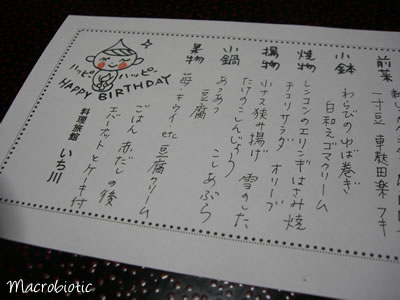 前菜
一寸豆 車麩田楽 フキ
小鉢
わらびのゆば巻き
白和えゴマクリーム
焼物
レンコンのエリンギはさみ焼
チコリサラダ オリーブ
揚物
小ナス挟み揚げ 雪のした
たけのこんじょう こしあぶら
小鍋
あつあつ 豆腐
果物
苺 キウイ etc 豆腐クリーム
ごはん 赤だし の後
エバーナットとケーキ付
料理旅館 いち川
ハッピー ハッピー
HAPPY BIRTHDAY
Macrobiotic